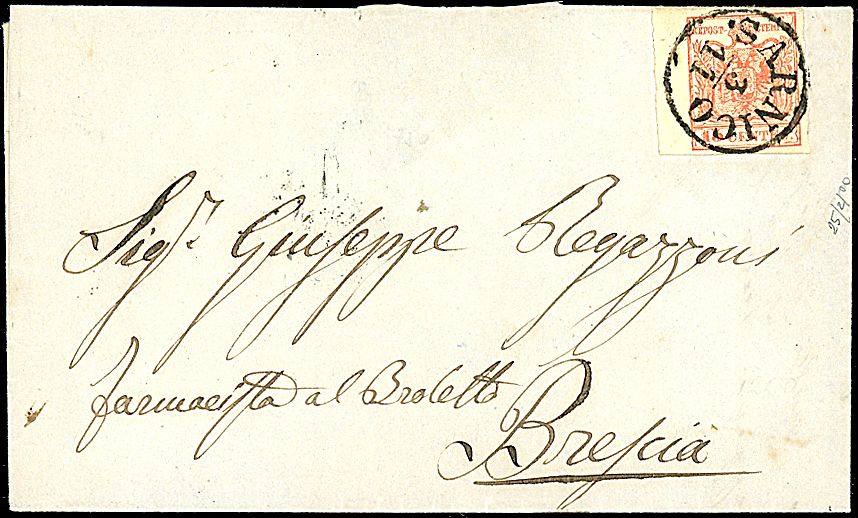 KKPOST-STEMPEL
SARNICO
11/3
15 CENTES.
Sig.r Giuseppe Regazzoni
farmacista al Broletto
Brescia
25/2/00